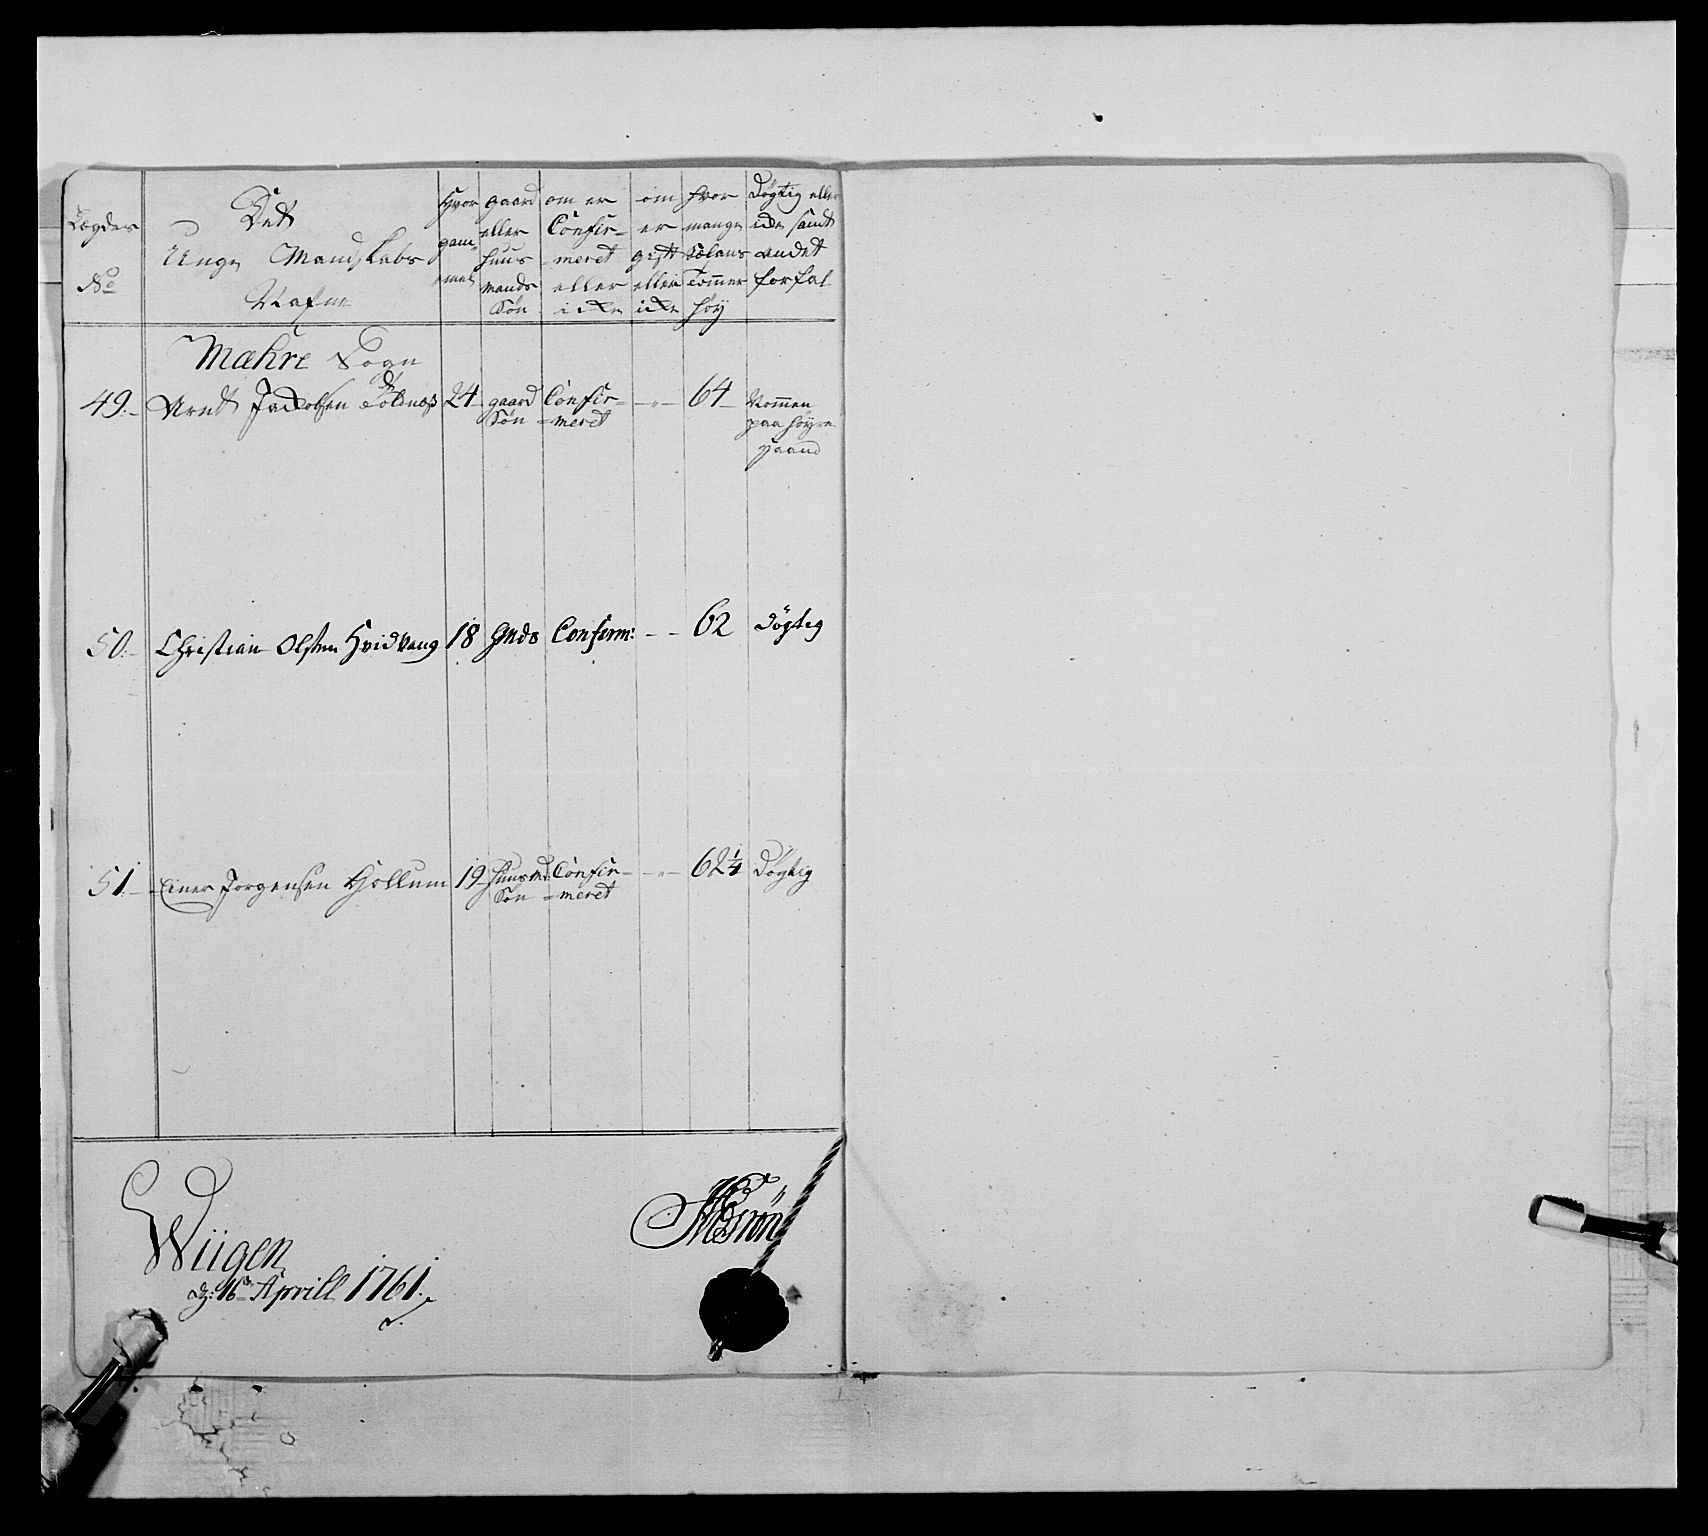 Lægdes No
Det Unge Mandskabs Nafne
Hvor gam= mel
gaard eller huus mands Søn
om er Confir= =meret eller icke
om er gift eller icke
hvor mange Sælans Tommer høy
Døgtig eller icke samt andet forfal
Mæhre Sogn
49:- Arnt Jackobsen 24- gaard Søn Confir= =meret -"- 64-
paa høyre Haand
50:- Christian Olsen Hvidvang 18 Hmds Confirm: - - 62 Døgtig
51:- Einer Jorgensen Hollum 19- huusmd: Søn Confir- =meret -"- 62 1/4 Døgtig
Wiigen
d: 16de Aprill 1761.